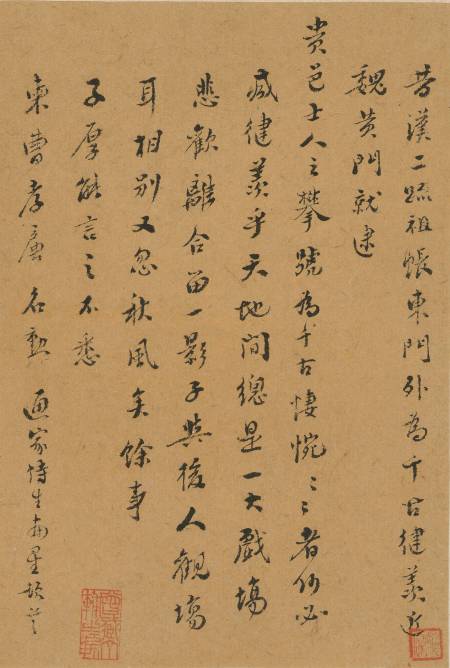 昔漢二疏祖帳東門外為千古健羨近
魏黃門就逮
貴邑士人之攀號為千古悽惋〻〻者何必
減健羨乎天地間總是一大戲場
悲歡離合留一影子與後人觀場
耳相別又忽秋風矣餘事
子厚能言之不悉
東曹孝廉 名勲 通家侍生